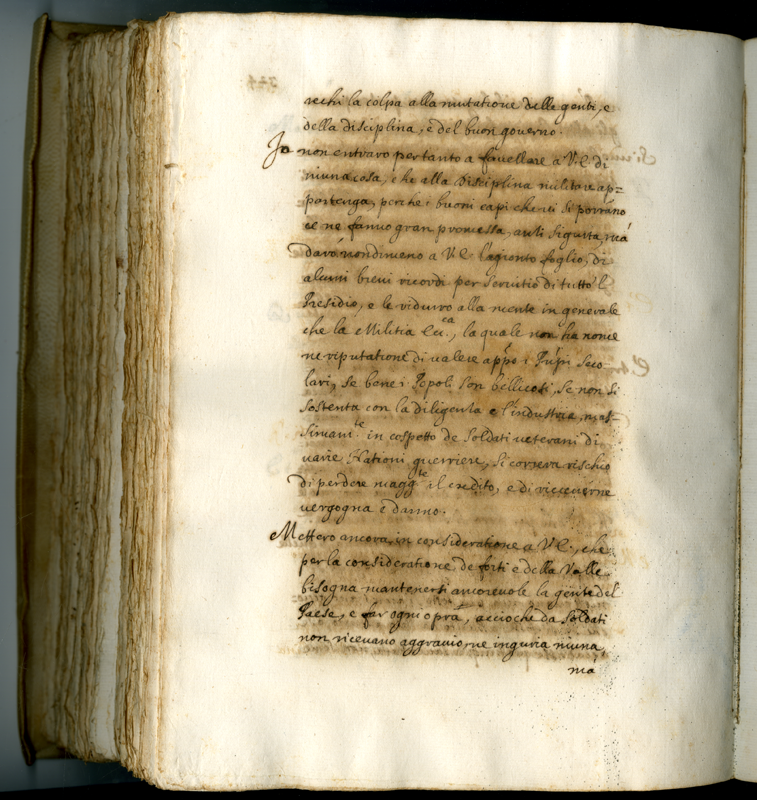 rechi la colpa alla mutatione delle genti, e
della disciplina, e del buon governo.
Io non entraro pertanto a favellare a V.E. di
niuna cosa, che alla Disciplina militare ap=
partenga, perche i buoni capi che ui si porrano
ce ne fanno gran promessa, anzi sigurtà, ma
darò nondimeno a V.E. l'agionto foglio, di
alcuni breui ricordi per seruitio di tutto 'l
Presidio, e le riduro alla mente in generale
che la Militia Ecc.ca, la quale non ha nome
ne riputatione di ualere app.o i Pñpi Seco
lari, se bene i Popoli son bellicosi, se non si
sostenta con la diligenza e l'industria, mas
simam.te in cospetto de Soldati ueterani di
uarie Nationi guerriere, si correrà rischio
di perdere magg.te il credito, e di riceuerne
uergogna e danno.
Mettero ancora in consideratione a V.E., che
per la consideratione de forti e della Valle
bisogna mantenersi amoreuole la gente del
Paese, e far ogni opra, accioche da Soldati
non riceuano aggrauio, ne ingiuria niuna,
ma